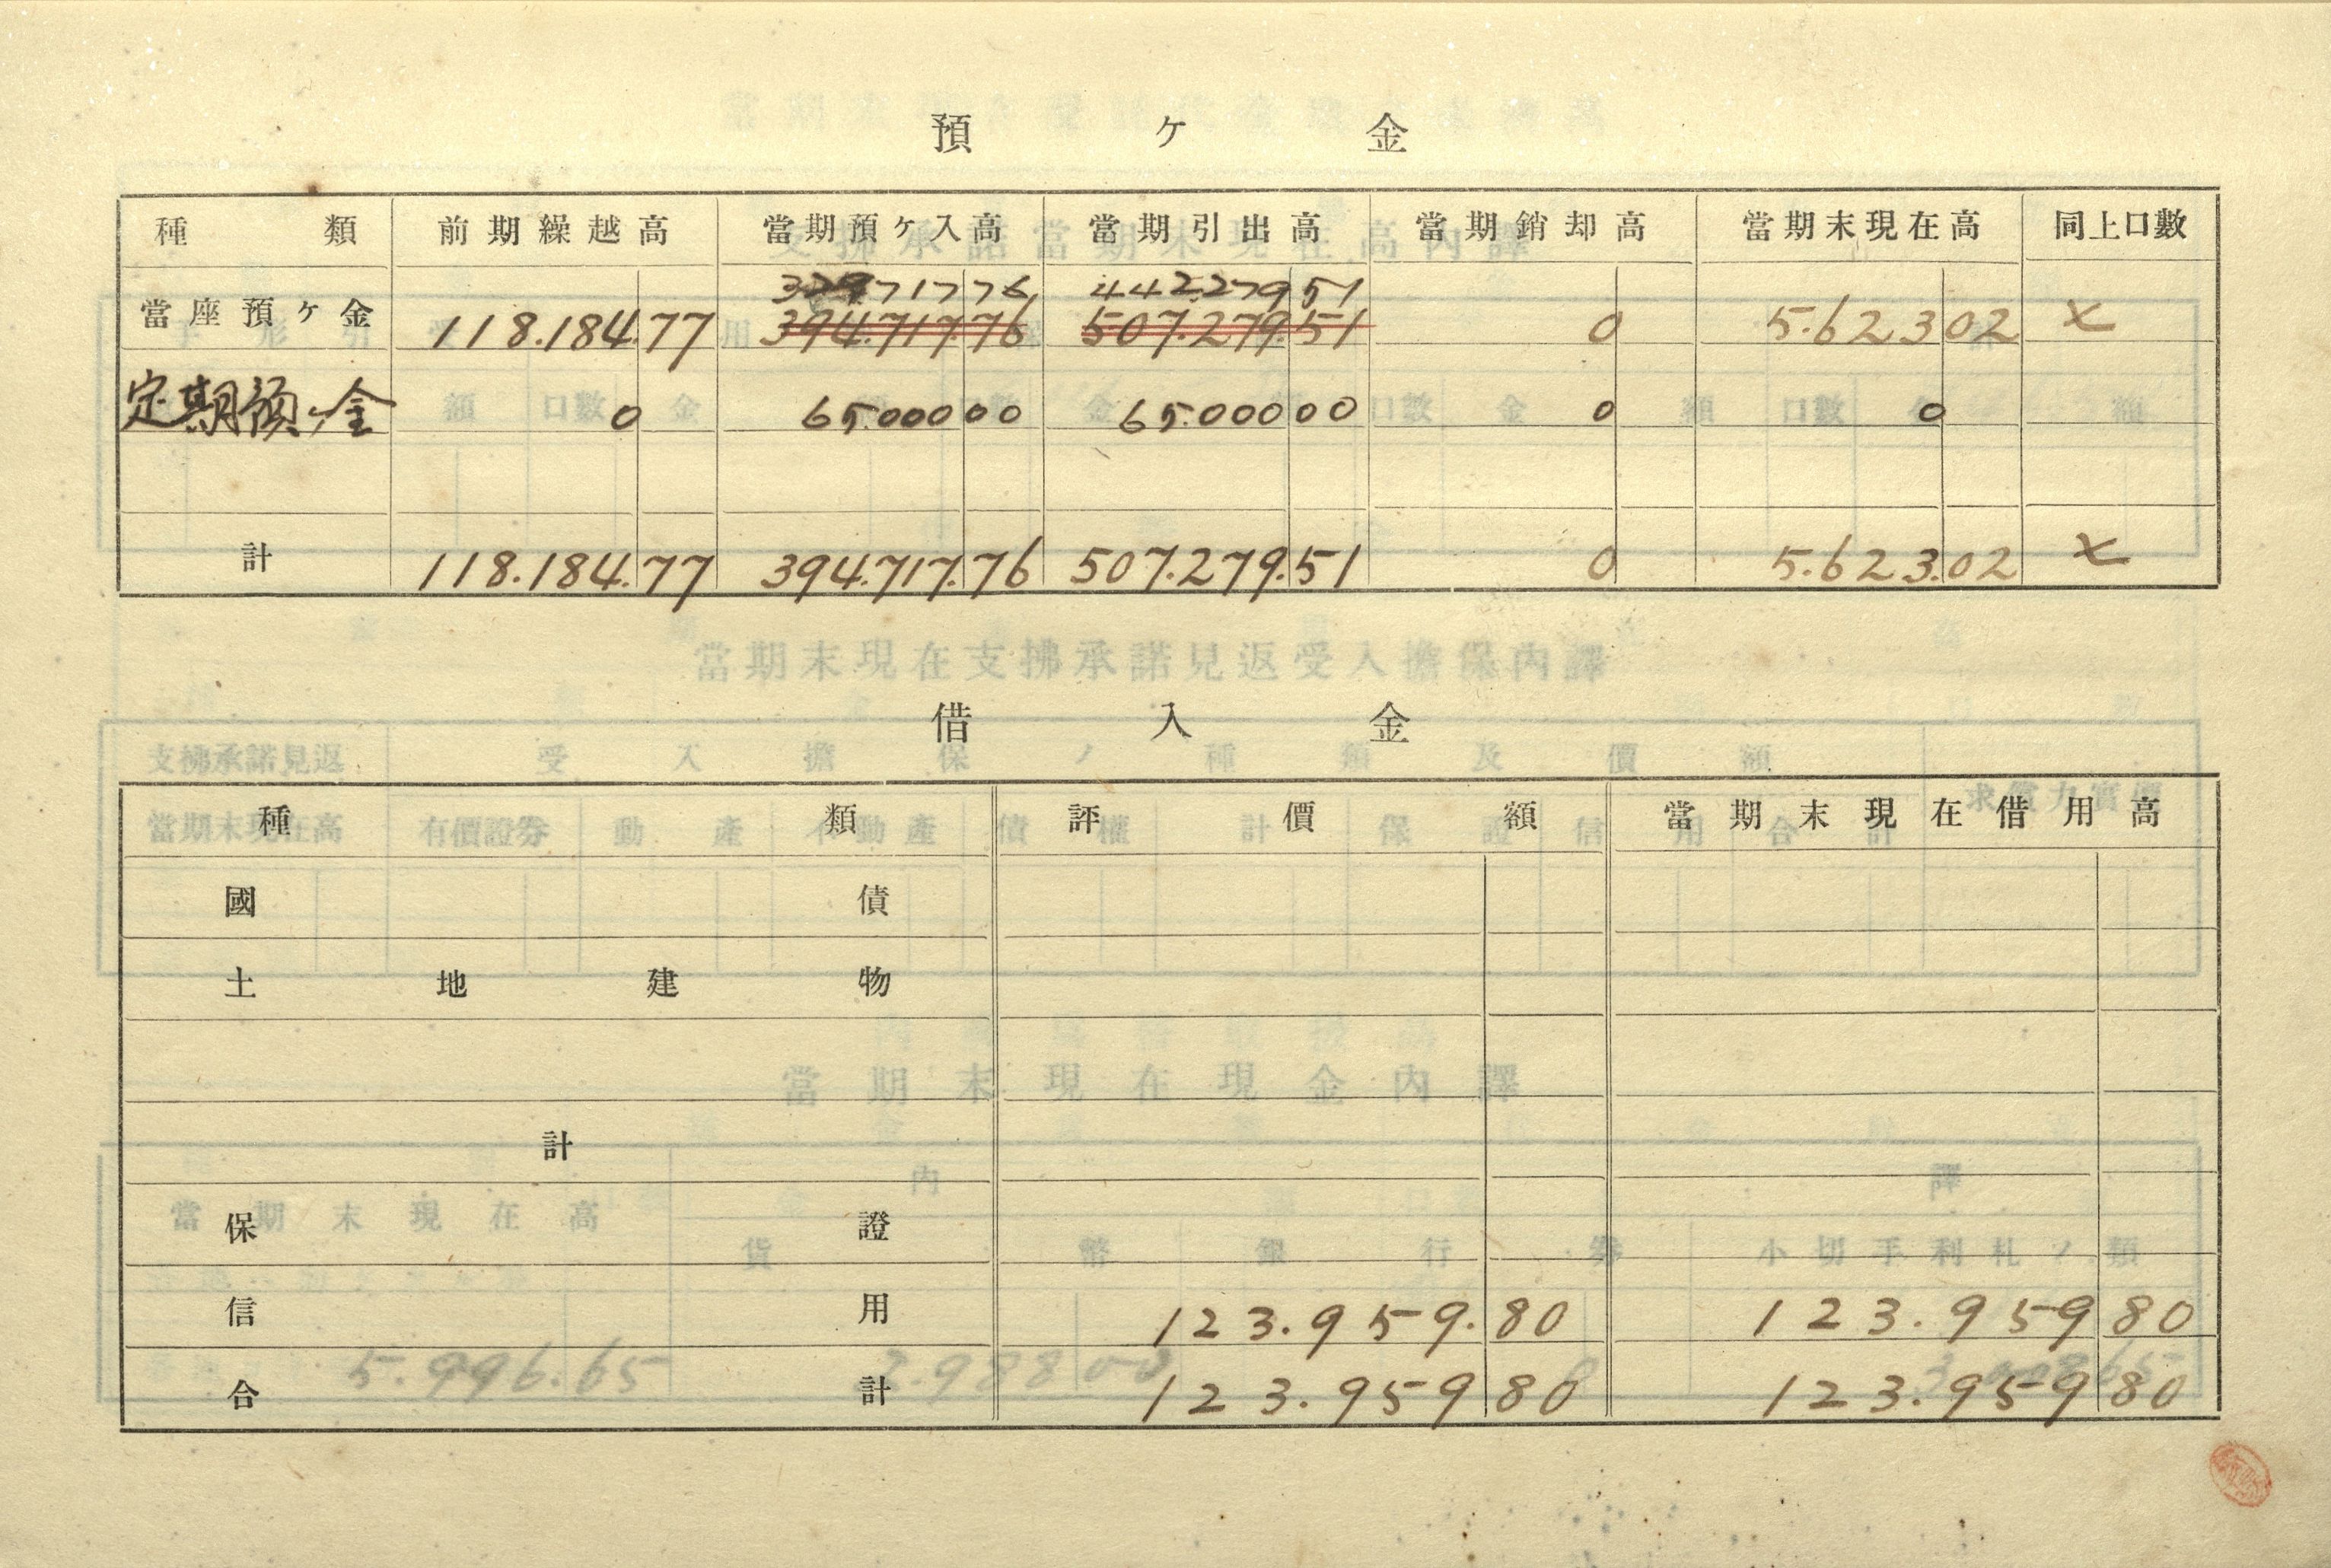 預ケ金
種類 前期繰越高 當期預ケ入高 當期引出高 當期銷却高 當期末現在高 同上口數
329717 76 442.279 51
當座預ケ金 118.184.77 394.717.76 507.279.51 0 5.623 02 ×
定期預ケ金 0 65.000 00 65.000 00 0 0
計 118.184.77 394.717.76 507.279.51 0 5.623.02 ×
借入金
種類 評價額 當期末現在借用高
國債
土地建物
計
保證
信用 123.959.80 123.959 80
合計 123.959 80 123.959 80